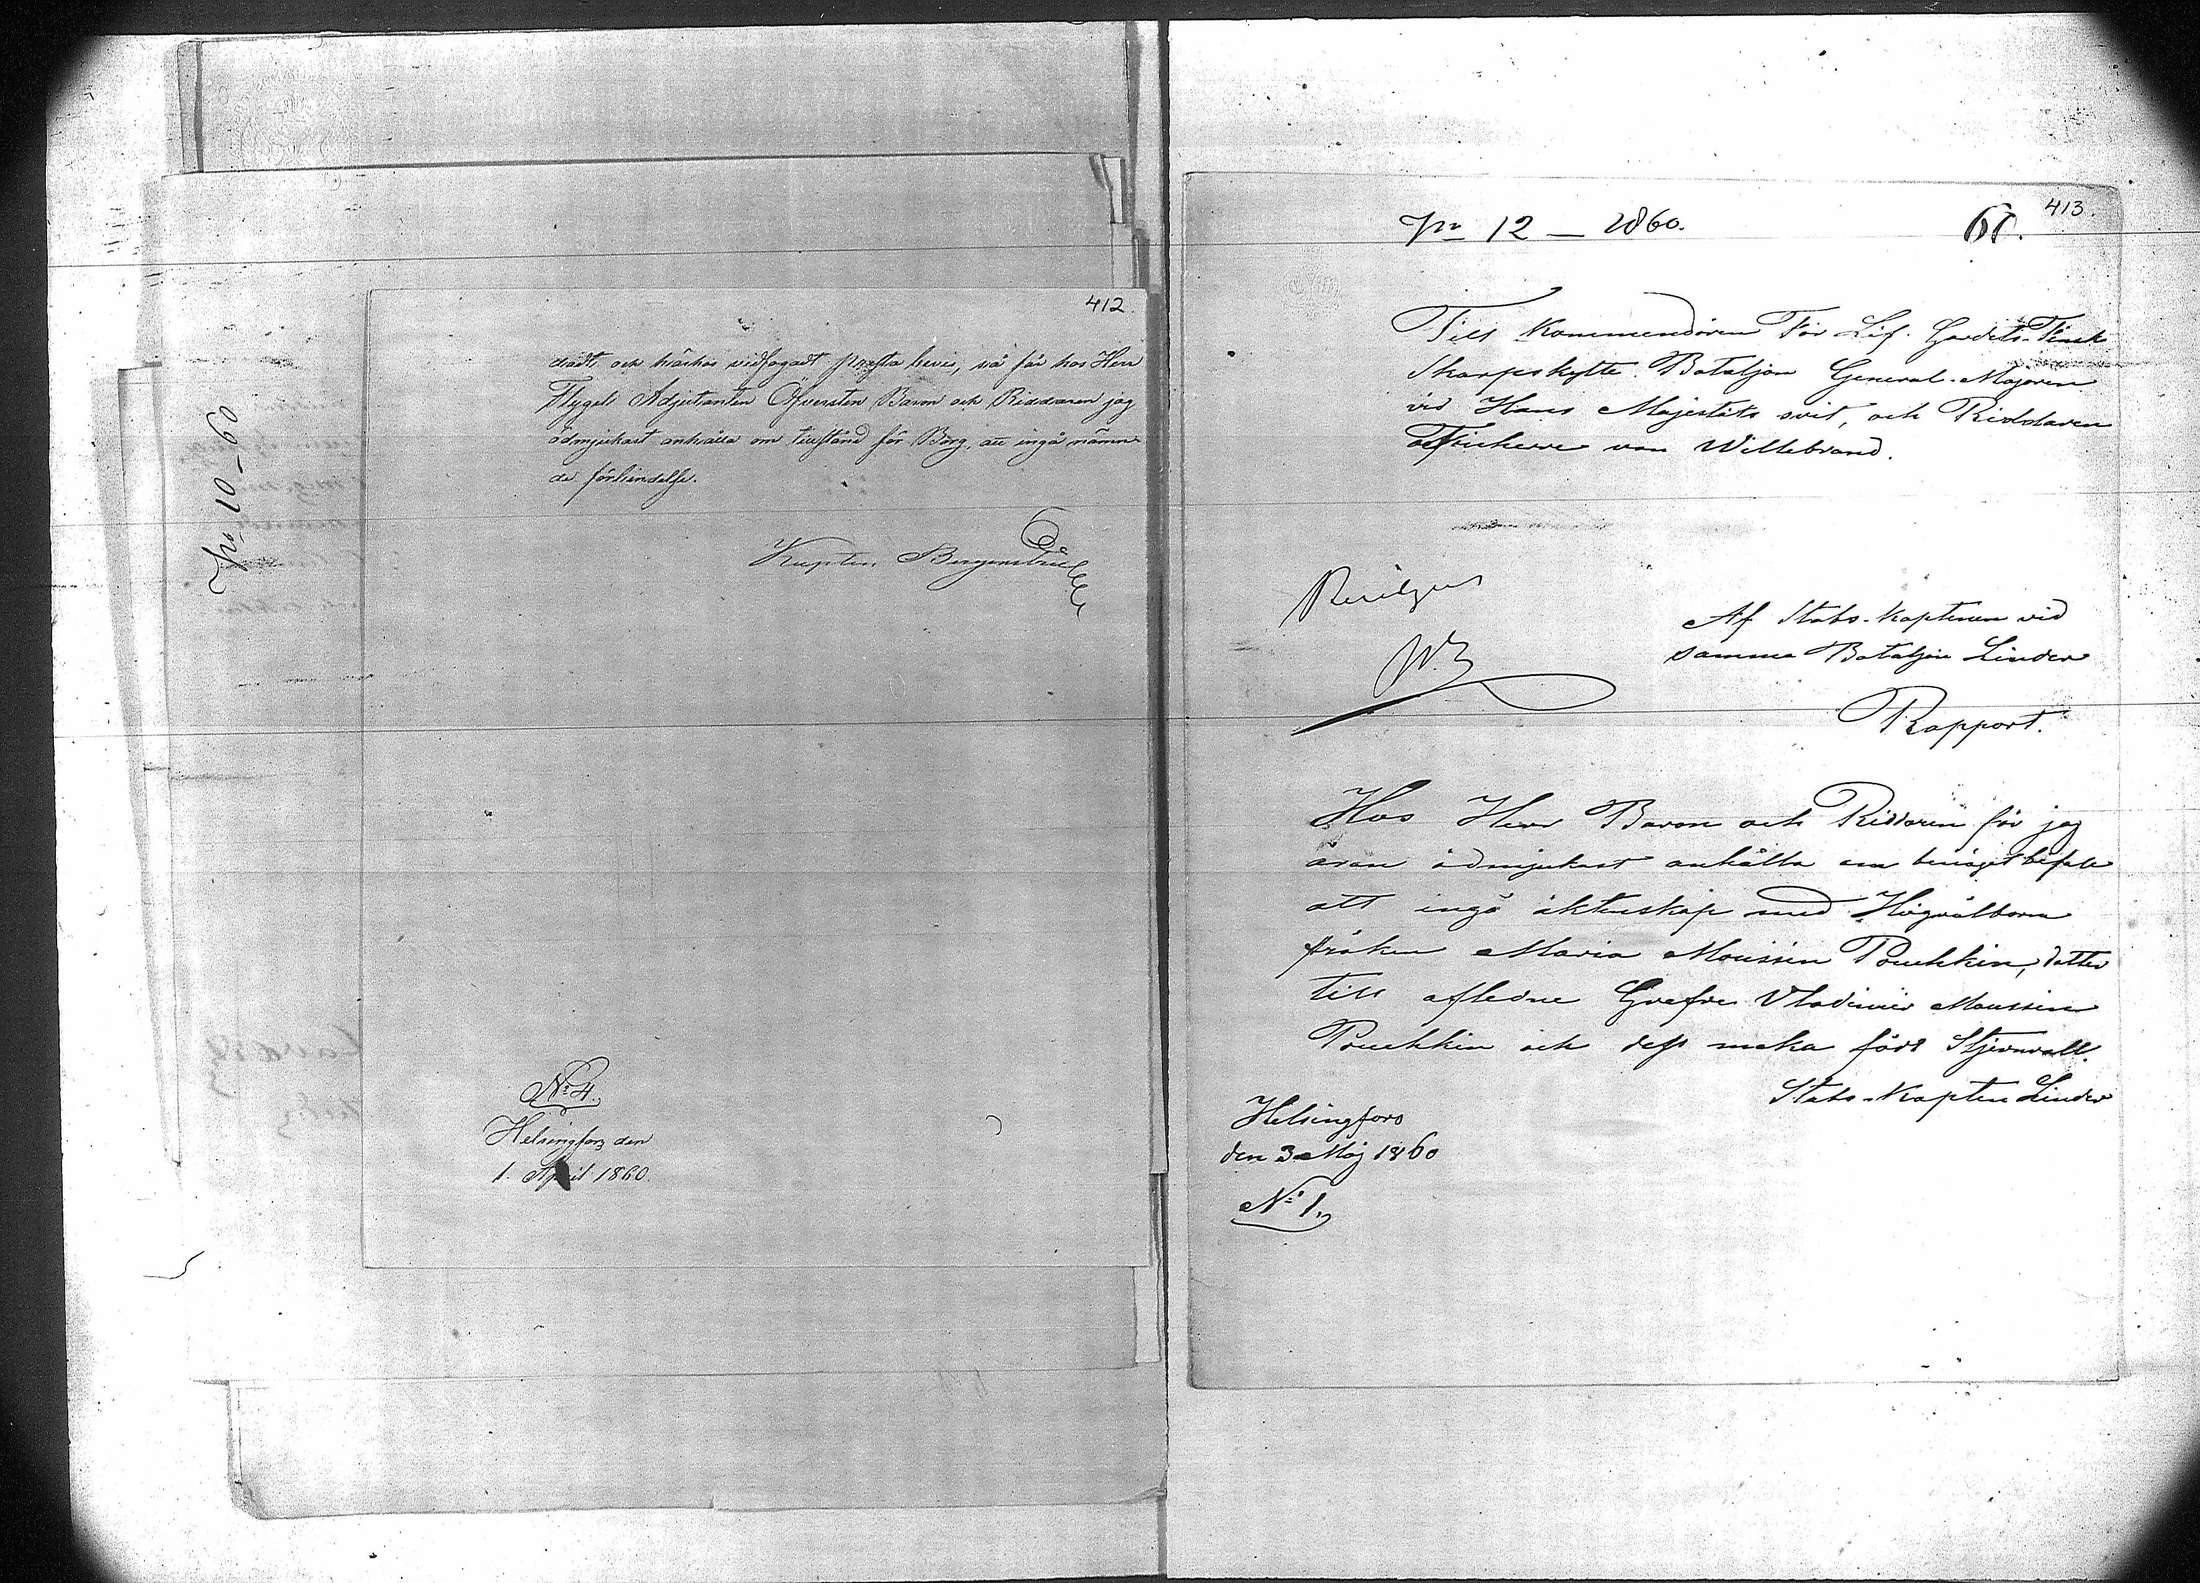 412
och härhos vidfogadt prestabevis, så får hos Herr
Flygel Adjutanten Öfversten Baron och Riddaren jag
ödmjukast anhålla om tillstånd för Borg, att ingå nämn-
de förbindelse.
Kapten Bergenstråle
No 4.
Helsingfors den
1. April 1860.
No 10-60
413.
No 12 — 1860.
Till Kommendören För Lif. Gardets Finska
Skarpskytte Bataljon General-Majoren
vid Hans Majestäts svit, och Riddaren
Friherre von Willebrand.
Af Stabs-kaptenen vid
samma Bataljon Linder
Rapport.
Hos Herr Baron och Riddaren får jag
äran ödmjukast anhålla om benäget
att ingå äktenskap med Högvälborna
fröken Maria Moussin Pouchkin, dotter
till aflidne Grefve Vladimir Moussin
Pouchkin och dess maka född Stjernvall.
Stabs-Kapten Linder
Helsingfors
den 3 Maj 1860
No 1.